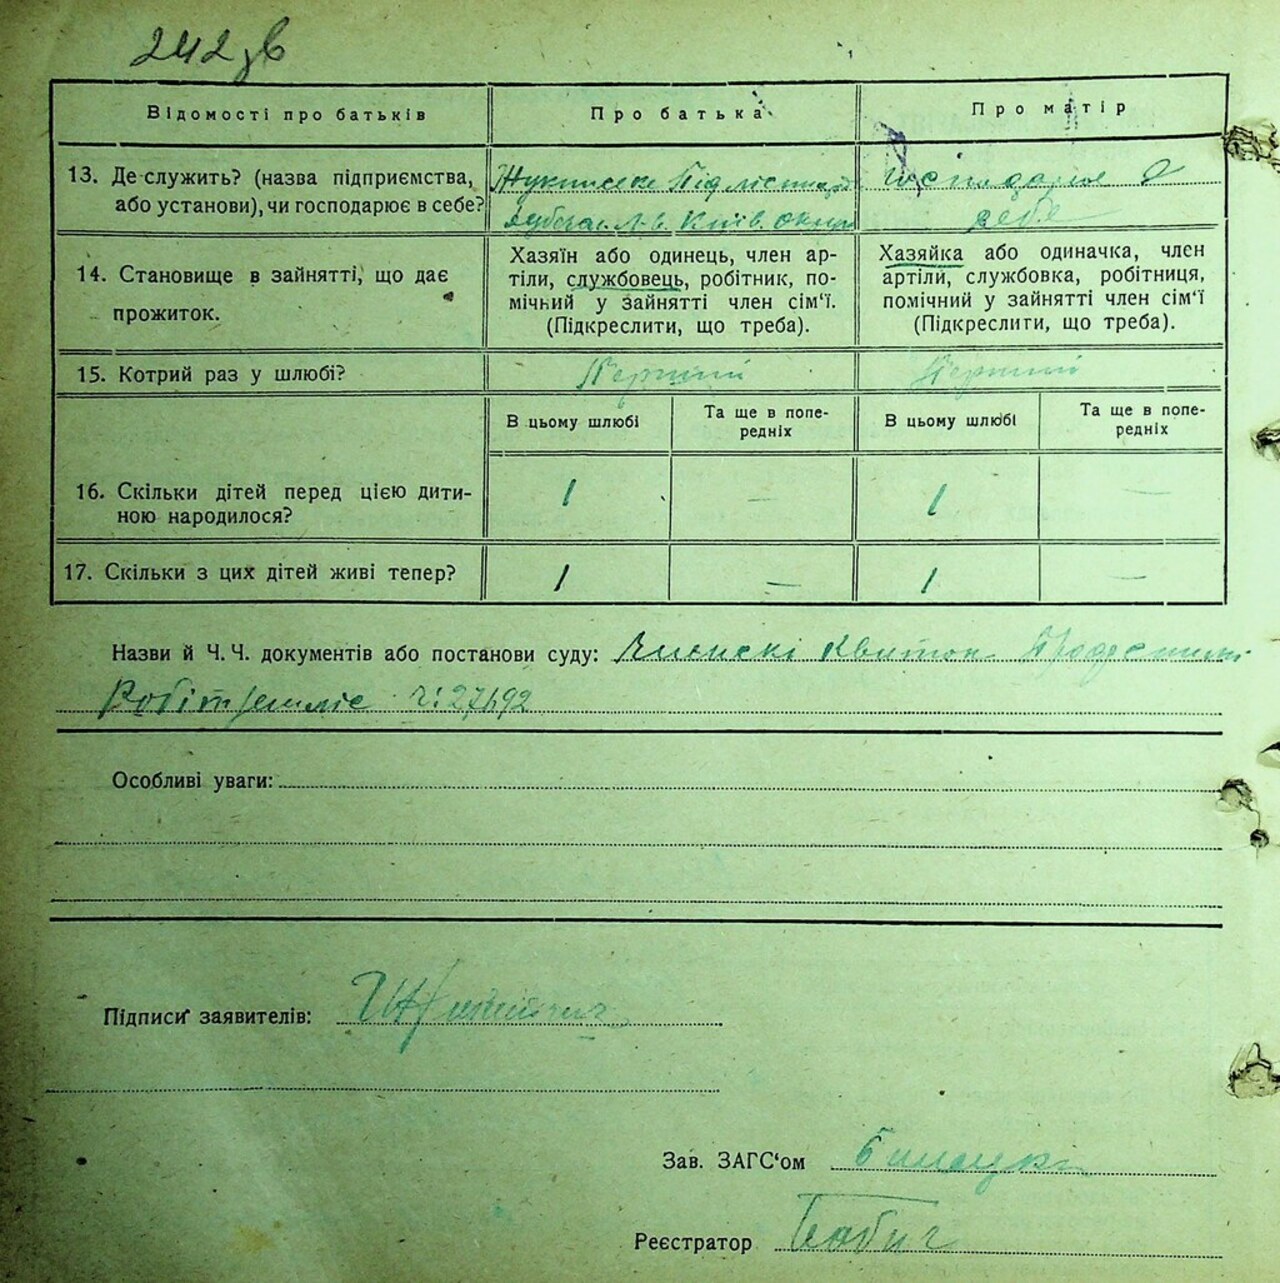 242 зв
Відомості про батьків Про батька Про матір
13. Де служить? (назва підприємства, або установи), чи господарює в себе?
Київ. Округ
господарює в
себе
14. Становище в зайнятті, що дає прожиток.
Хазяїн або одинець, член ар-
тіли, службовець, робітник, по-
мічний у зайнятті член сім‘ї.
(Підкреслити, що треба).
Хазяйка або одиначка, член
артіли, службовка, робітниця,
помічний у зайнятті член сім‘ї
(Підкреслити, що треба).
15. Котрий раз у шлюбі? Перший Перший
В цьому шлюбі Та ще в попе-
редніх В цьому шлюбі Та ще в попе-
редніх
16. Скільки дітей перед цією дити-
ною народилося? 1 — 1 —
17. Скільки з цих дітей живі тепер? 1 — 1 —
Назви й Ч. Ч. документів або постанови суду: Членскі Квиток
Робітземліс
Особливі уваги:
Підписи заявителів:
Зав. ЗАГС‘ом
Реєстратор Бабич